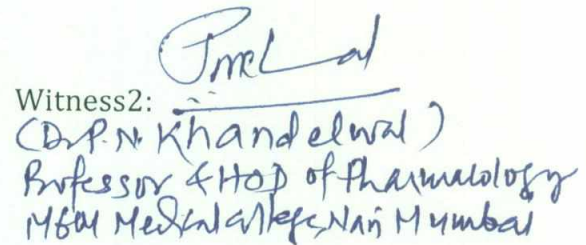 Witness2:
(Dr.P.N. Khandelwal)
Professor & HOD of Pharmacology
MGM Medical College, Navi Mumbai